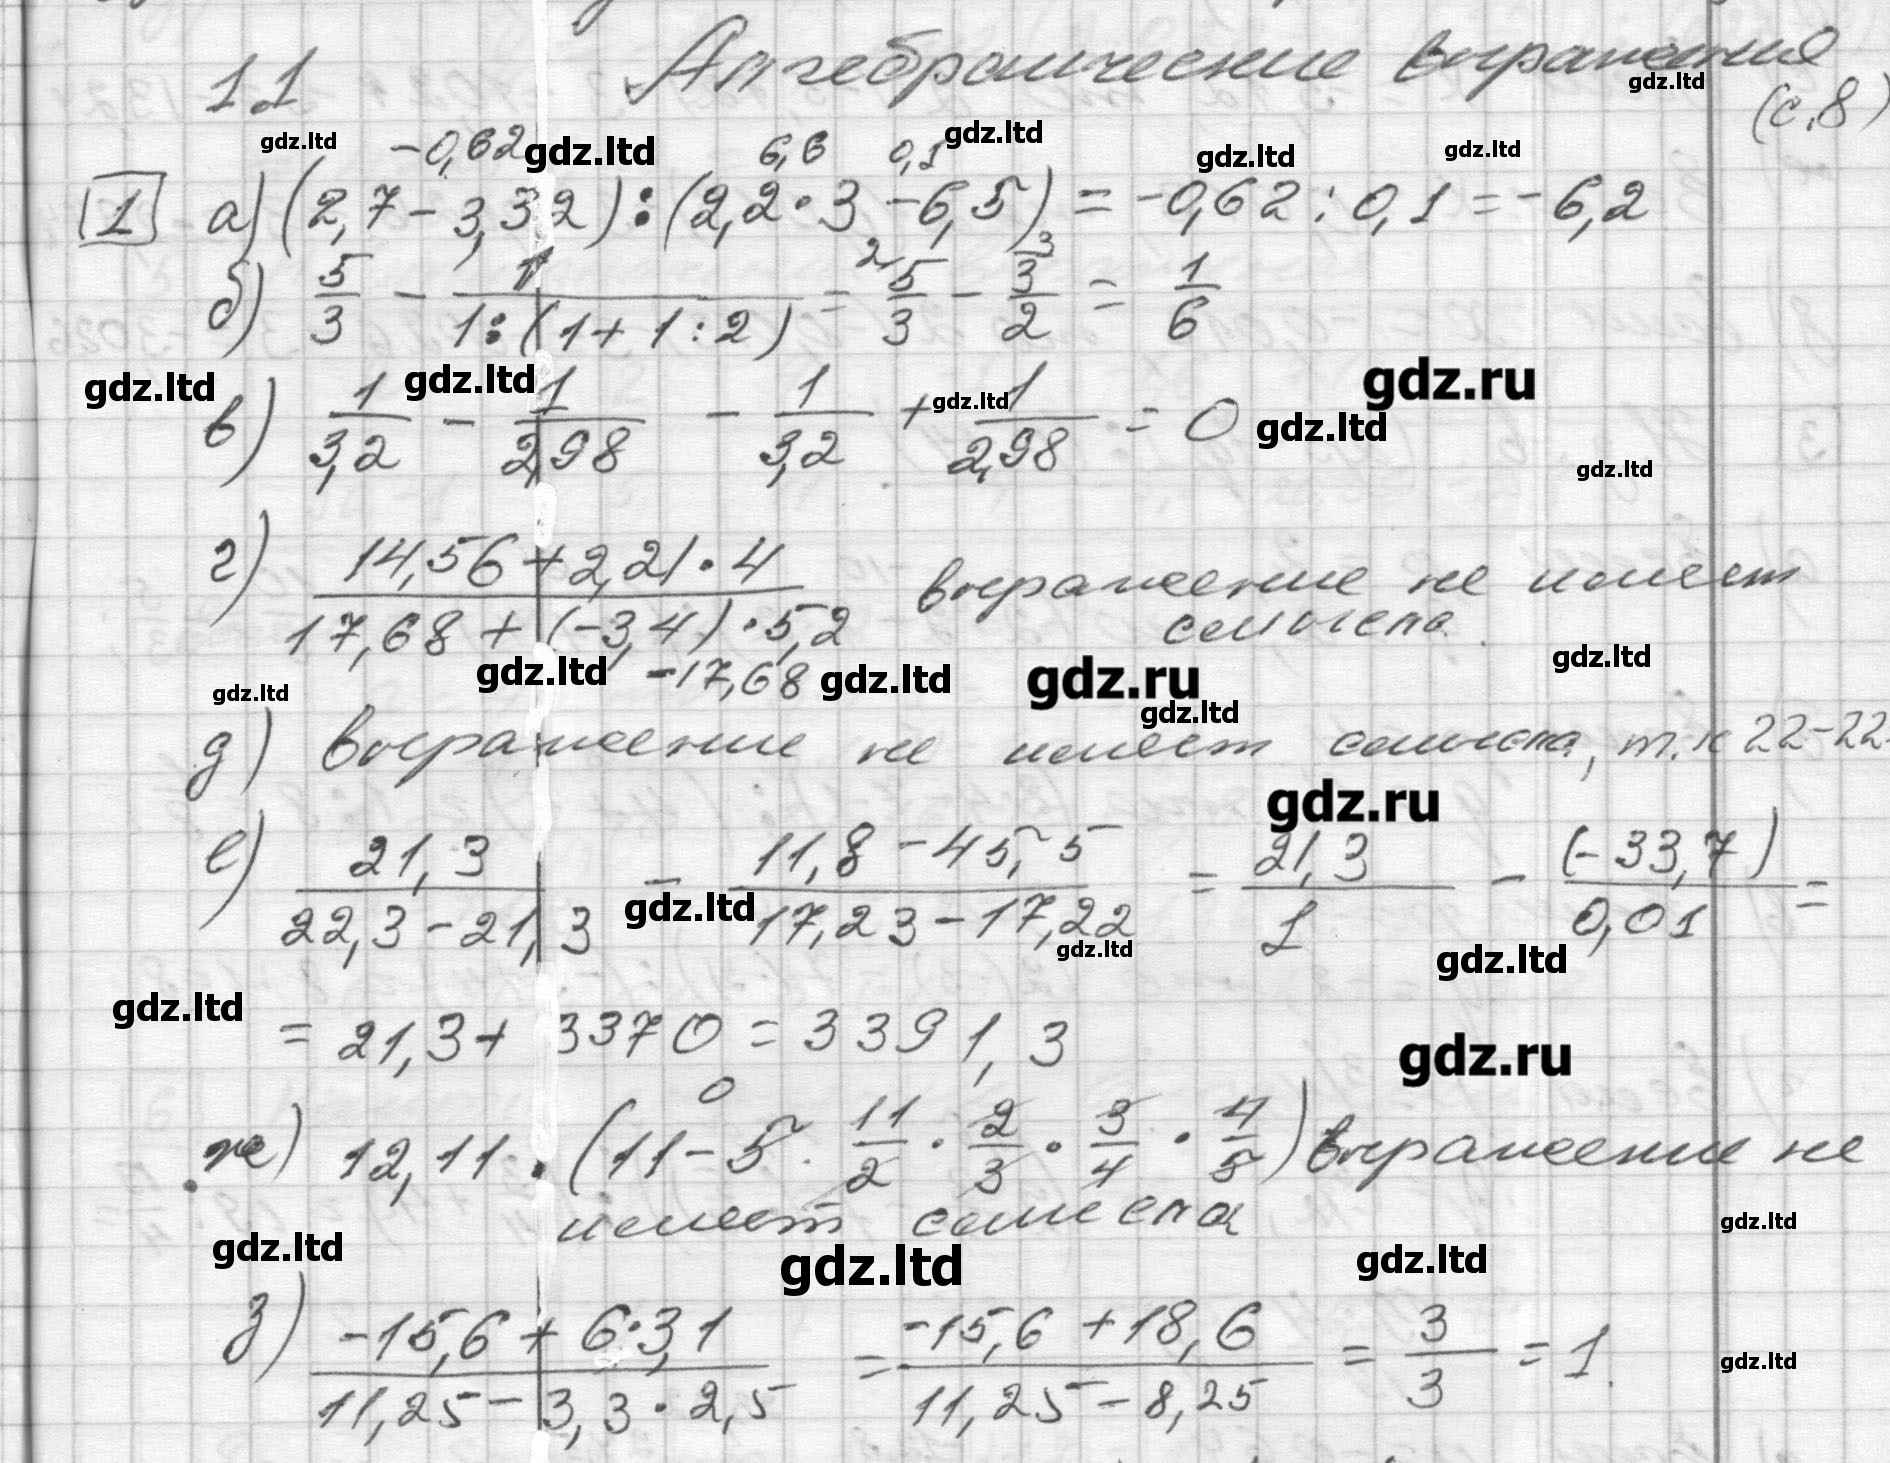 11 Алгебраические выражения
gdz.ltd
(с.8)
gdz.ltd -0,62 gdz.ltd 6,6 0,1 gdz.ltd gdz.ltd gdz.ltd
1 а) (2,7 - 3,32) : (2,2 · 3 - 6,5) = -0,62 : 0,1 = -6,2
б) 5/3 - 1/(1:(1+1:2)) = 2 5/3 - 3 3/2 = 1/6
gdz.ltd gdz.ltd gdz.ltd gdz.ru
в) 1/3,2 - 1/2,98 - 1/3,2 + 1/2,98 = 0 gdz.ltd
gdz.ltd
г) (14,56 + 2,21 · 4)/(17,68 + (-3,4) · 5,2) выражение не имеет
смысла.
gdz.ltd gdz.ltd -17,68 gdz.ltd gdz.ru gdz.ltd gdz.ltd
д) выражение не имеет смысла, т.к 22-22
gdz.ru
е) 21,3/(22,3 - 21,3) - (11,8 - 45,5)/(17,23 - 17,22) = 21,3/1 - (-33,7)/0,01 =
gdz.ltd gdz.ltd gdz.ltd
gdz.ltd
= 21,3 + 3370 = 3391,3
gdz.ru
0
ж) 12,11 : (11 - 5 · 11/2 · 2/3 · 3/4 · 4/5) выражение не
имеет смысла
gdz.ltd gdz.ltd gdz.ltd gdz.ltd
з) (-15,6 + 6·3,1)/(11,25 - 3,3 · 2,5) = (-15,6 + 18,6)/(11,25 - 8,25) = 3/3 = 1.
gdz.ltd